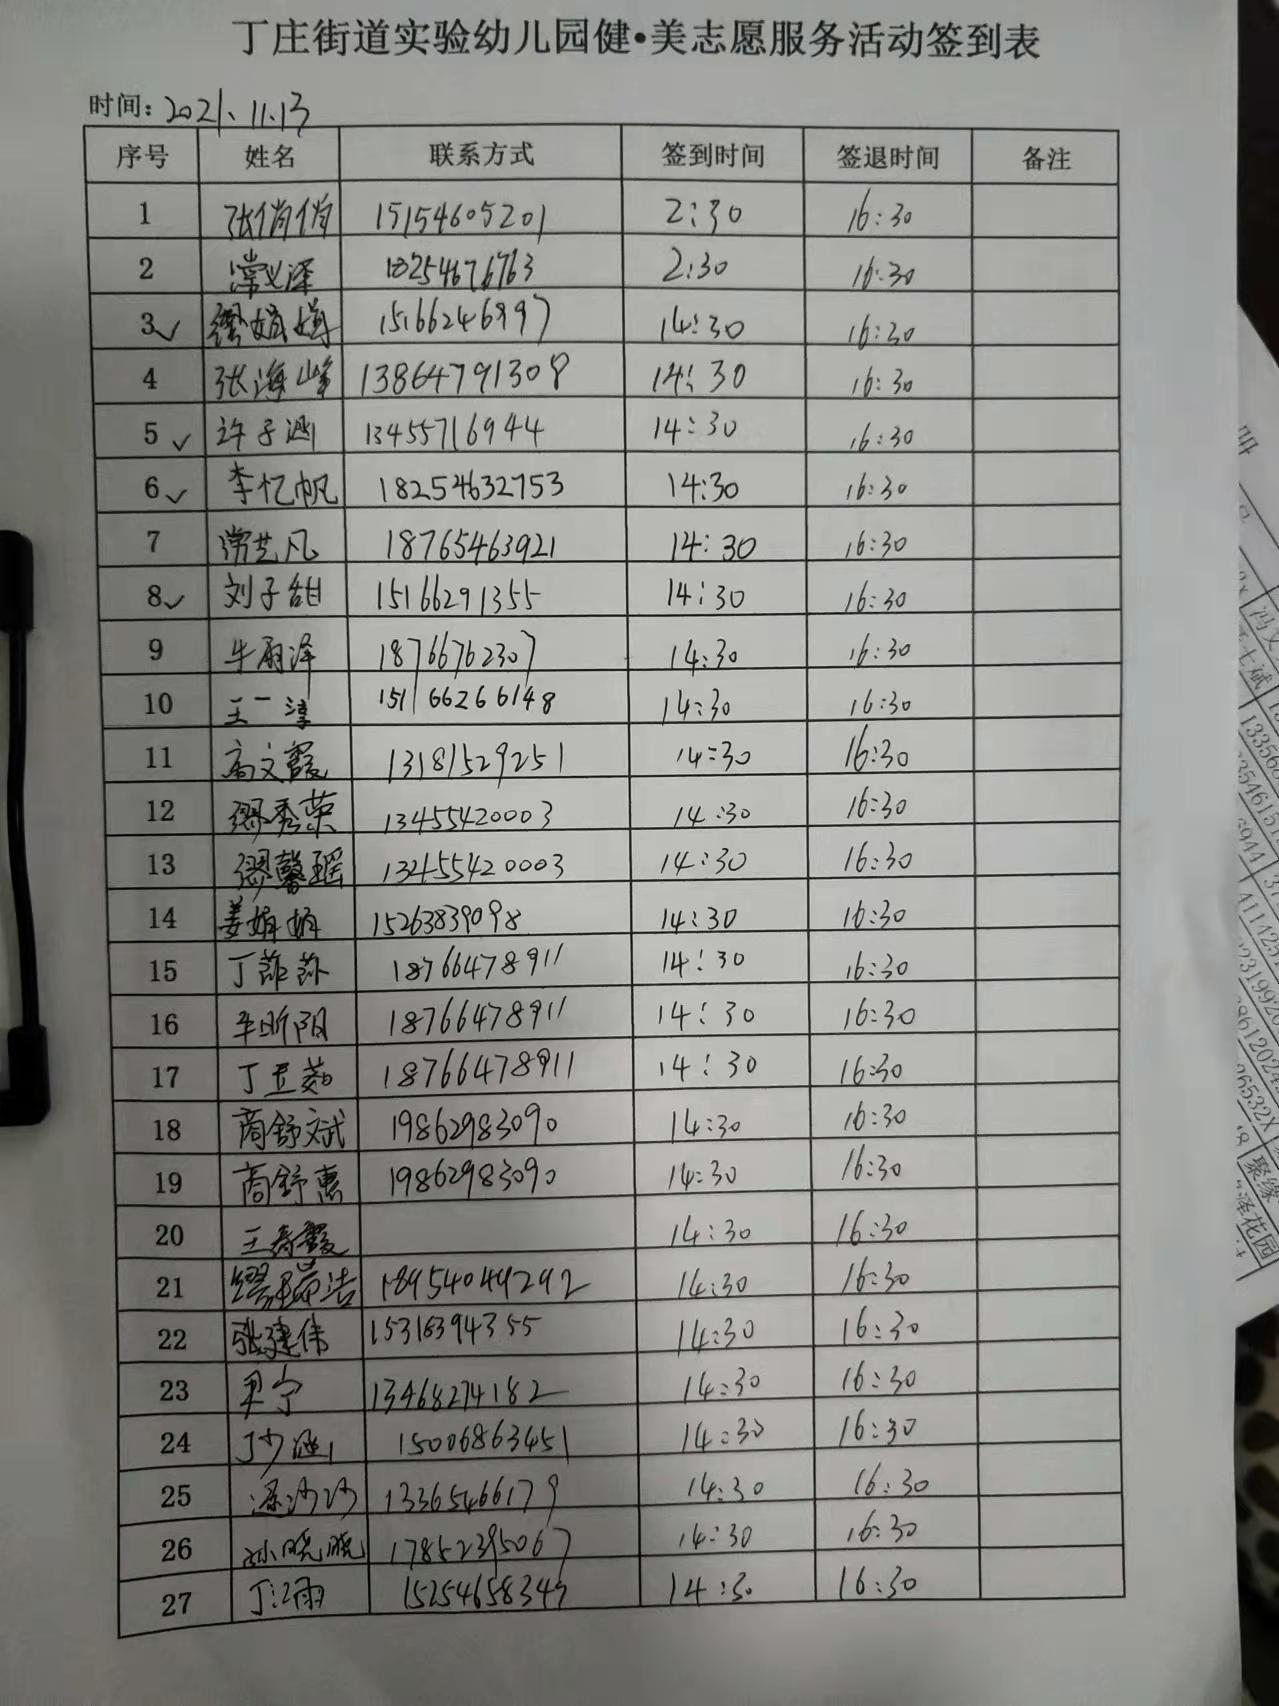 丁庄街道实验幼儿园健•美志愿服务活动签到表
时间：2021.11.13
序号 姓名 联系方式 签到时间 签退时间 备注
1 张俏俏 15154605201 2:30 16:30
2 常义泽 18254676763 2:30 16:30
3✓ 缪娟娟 15166246997 14:30 16:30
4 张海峰 13864791308 14:30 16:30
5✓ 许子涵 13455716944 14:30 16:30
6✓ 李忆帆 18254632753 14:30 16:30
7 常艺凡 18765463921 14:30 16:30
8✓ 刘子甜 15166291355 14:30 16:30
9 牛雨泽 18766762307 14:30 16:30
10 王一淳 15166266148 14:30 16:30
11 高文霞 13181529251 14:30 16:30
12 缪秀荣 13455420003 14:30 16:30
13 缪馨瑶 13455420003 14:30 16:30
14 姜娟娟 15263839098 14:30 16:30
15 丁 18766478911 14:30 16:30
16 昕阳 18766478911 14:30 16:30
17 丁 18766478911 14:30 16:30
18 商舒斌 19862983090 14:30 16:30
19 商舒惠 19862983090 14:30 16:30
20 王春霞 14:30 16:30
21 缪洁 18954049292 14:30 16:30
22 张建伟 15318394355 14:30 16:30
23 宁 13468274182 14:30 16:30
24 丁少涵 15006863451 14:30 16:30
25 沙沙 13365466179 14:30 16:30
26 孙晓晓 17852395067 14:30 16:30
27 丁江雨 15254658349 14:30 16:30
聚缘
泽花园